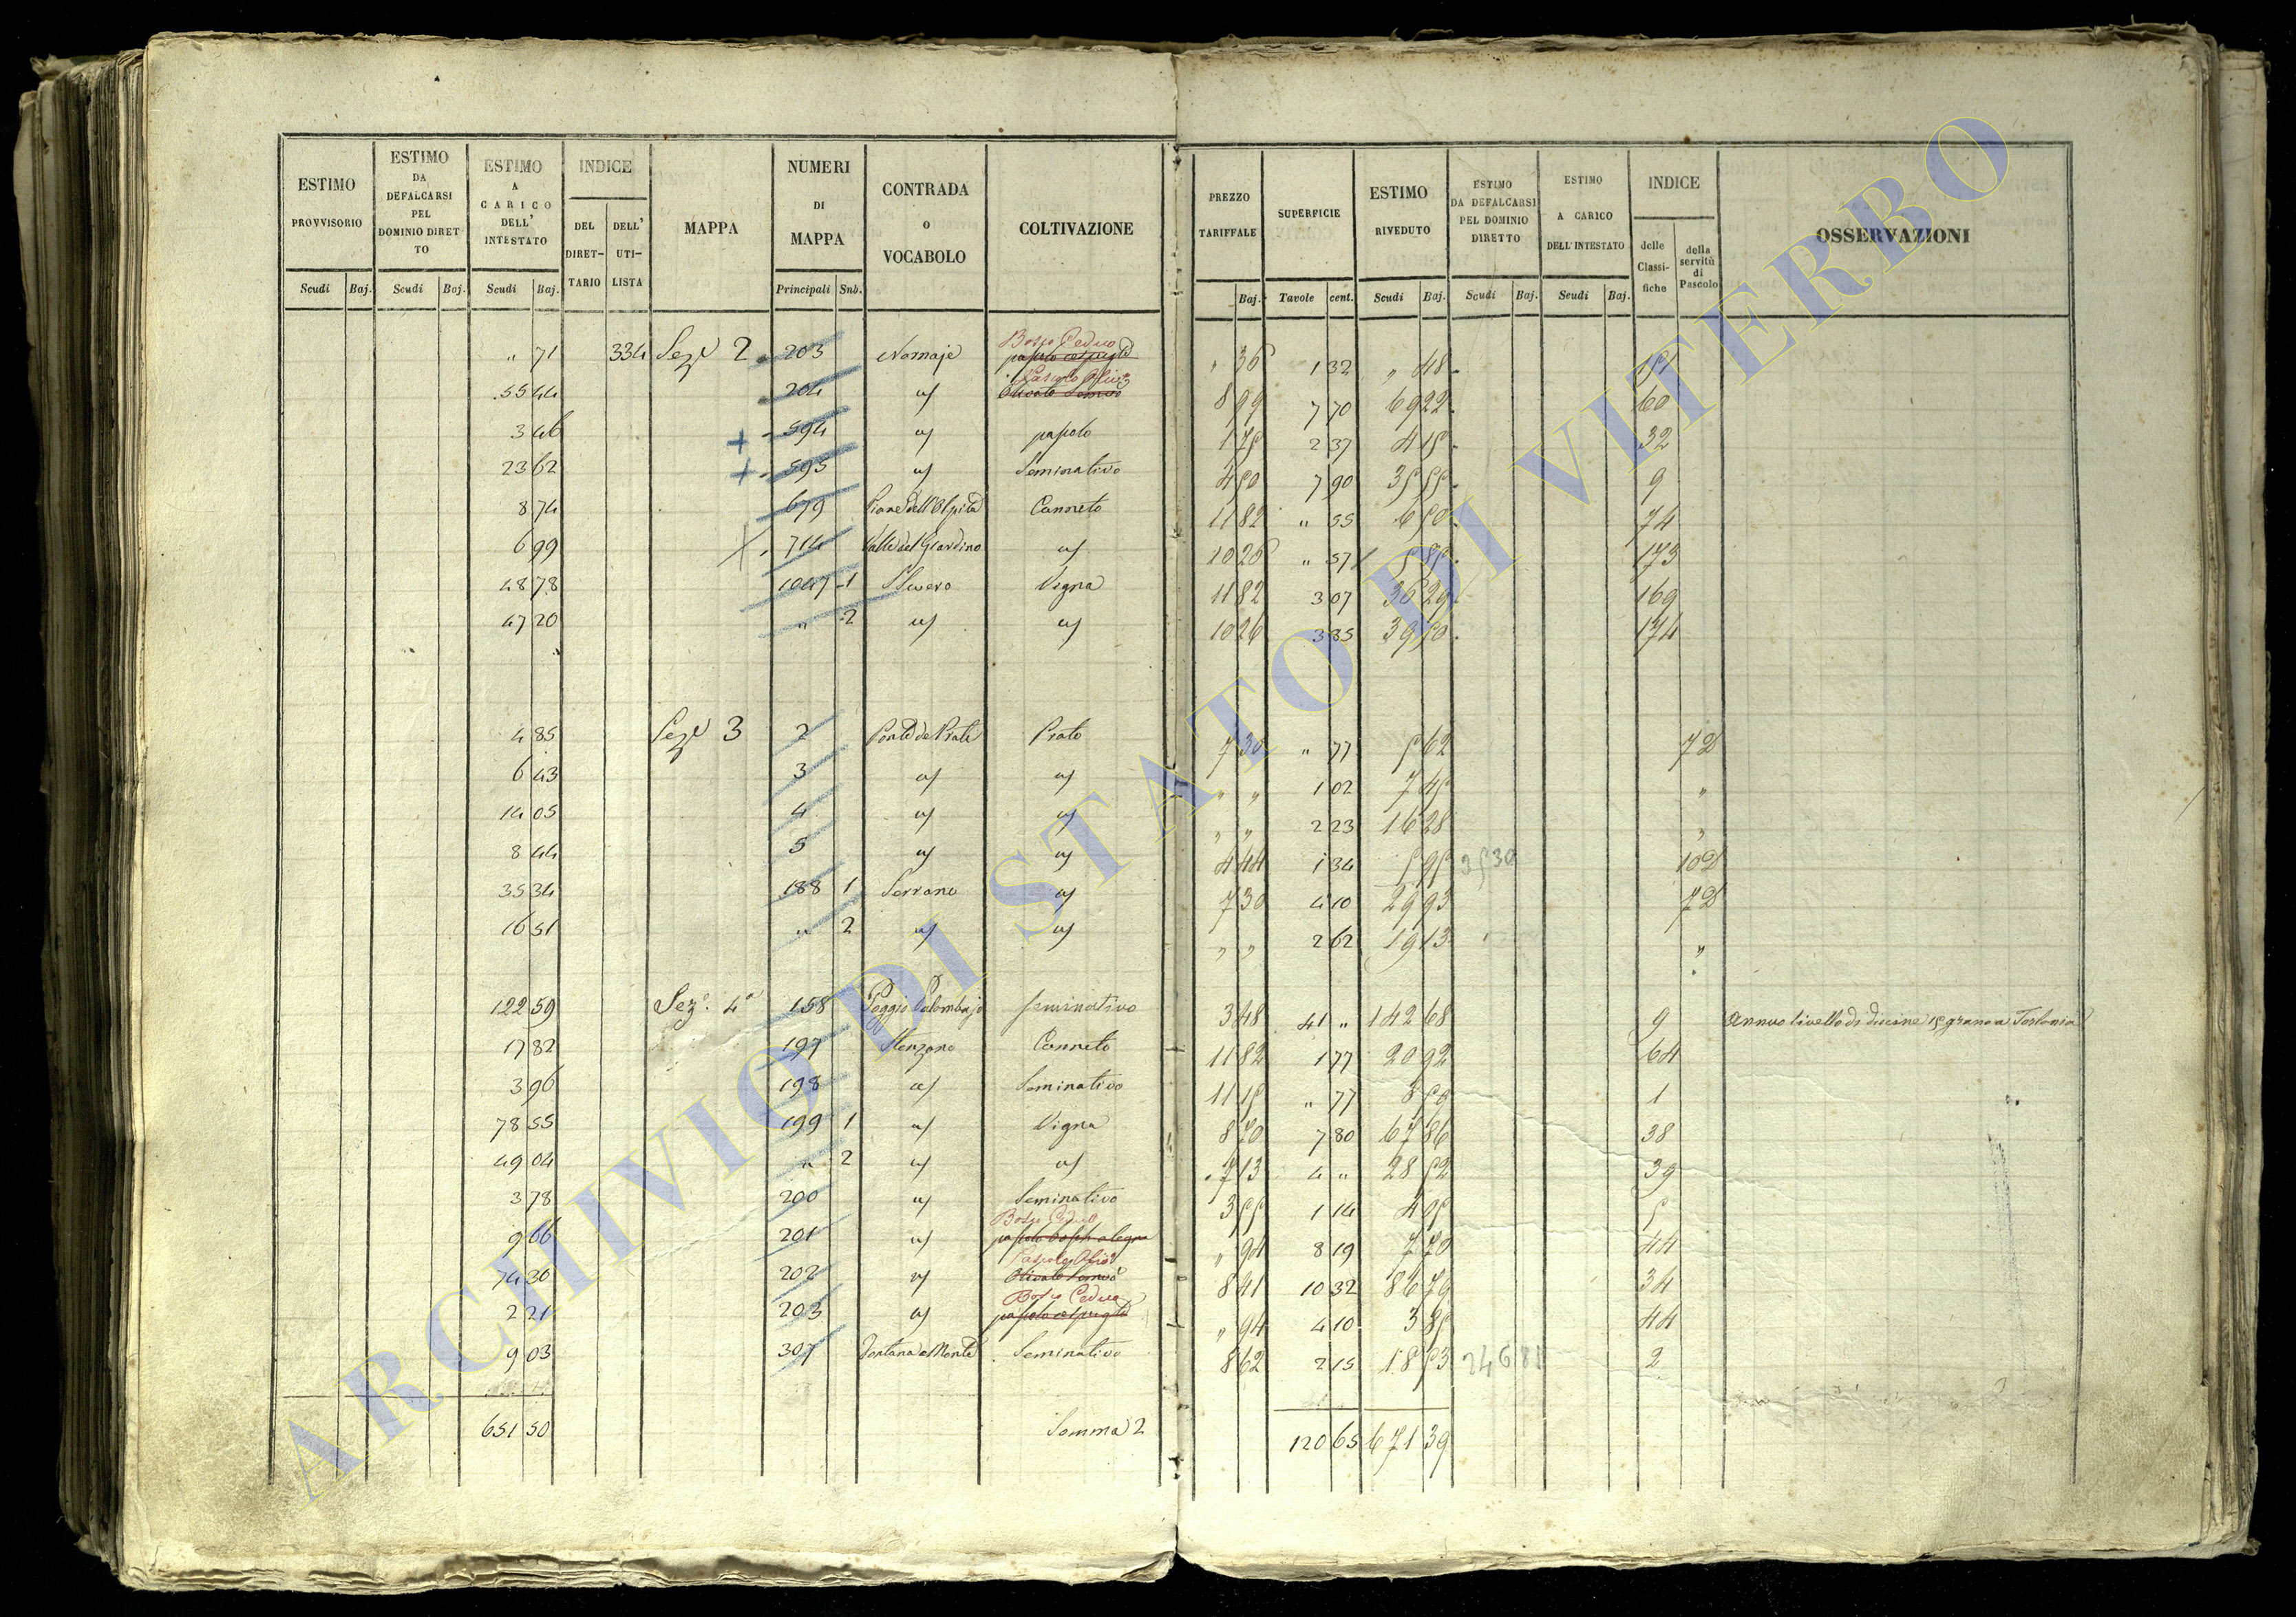 ESTIMO PROVVISORIO Scudi Baj. ESTIMO DA DEFALCARSI PEL DOMINIO DIRETTO Scudi Baj. ESTIMO A CARICO DELL' INTESTATO Scudi Baj. INDICE DEL DIRETTARIO DELL' UTILISTA MAPPA NUMERI DI MAPPA Principali Sub. CONTRADA o VOCABOLO COLTIVAZIONE PREZZO TARIFFALE Baj. SUPERFICIE Tavole cent. ESTIMO RIVEDUTO Scudi Baj. ESTIMO DA DEFALCARSI PEL DOMINIO DIRETTO Scudi Baj. ESTIMO A CARICO DELL'INTESTATO Scudi Baj. INDICE delle Classifiche della servitù di Pascolo OSSERVAZIONI
Bosco Ceduo
" 71 334 Sezе 2 203 Nomaje pascolo cespuglto " 36 1 32 " 48
Pascolo Olivo
55 44 204 Olivato Semivo 8 99 7 70 69 22 60
3 46 594 pascolo 1 75 2 37 4 15 32
23 62 595 Seminativo 4 50 7 90 35 55 9
8 74 679 Canneto 11 82 " 55 6 50 74
6 99 714 Valle del Giardino 10 26 " 57 5 85 173
48 78 1047 1 S Severo Vigna 11 82 3 07 36 29 169
47 20 " 2 10 26 3 85 39 50 174
4 85 Sezе 3 2 Prato 7 30 " 77 5 62 7 D
6 43 3 " " 1 02 7 45 "
14 05 4 " " 2 23 16 28 "
8 44 5 4 44 1 34 5 95 35 30 10 D
35 34 188 1 Serrano 7 30 4 10 29 93 7 D
16 51 " 2 " " 2 62 19 13 "
122 59 Seze. 4a 158 Poggio Colombajo seminativo 3 48 41 " 142 68 9 Annuo livello di decine 15 grano a Torlonia
17 82 197 Canneto 11 82 1 77 20 92 64
3 96 198 Seminativo 11 15 " 77 8 59 1
78 55 199 1 Vigna 8 70 7 80 67 86 38
49 04 " 2 7 13 4 " 28 52 39
3 78 200 Seminativo 3 55 1 14 4 05 5
Bosco Ceduo
9 66 201 " 94 8 19 7 70 44
Pascolo Olivo
74 30 202 Olivato Semivo 8 41 10 32 86 79 34
Bosco Ceduo
2 21 203 pascolo cespuglto " 94 4 10 3 85 44
9 03 307 Fontana a Monte Seminativo 8 62 2 15 18 53 246 81 2
651 50 Somma 2 120 65 671 39
ARCHIVIO DI STATO DI VITERBO